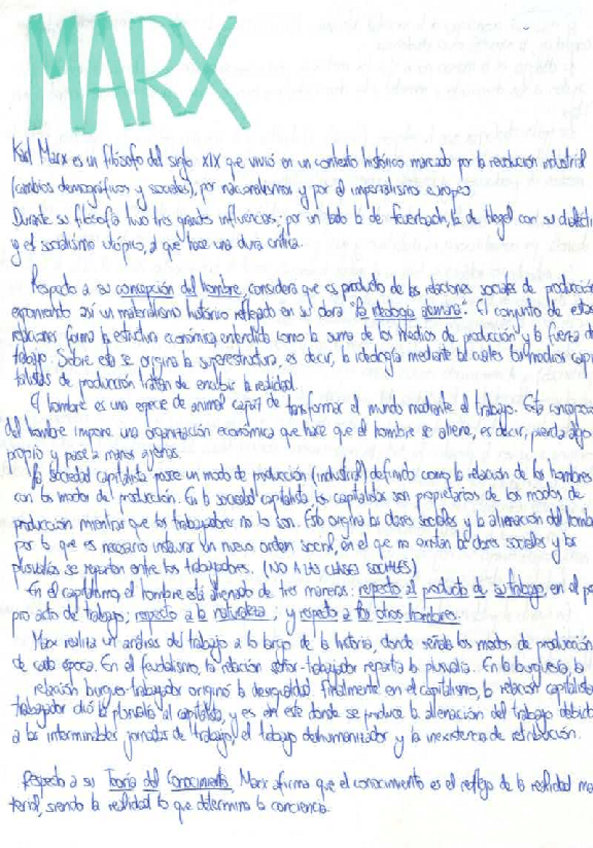 MARX
Karl Marx es un filósofo del siglo XIX que vivió en un contexto histórico marcado por la revolución industrial
(cambios demográficos y sociales), por nacionalismos y por el imperialismo europeo.
Durante su filosofía tuvo tres grandes influencias; por un lado la de Feuerbach, la de Hegel con su
y el socialismo utópico, al que hace una dura crítica.
Respecto a su concepción del hombre, considera que es producto de las relaciones sociales de producción
exponiendo así un materialismo histórico reflejado en su obra "La ideología alemana". El conjunto de estas
relaciones forma la estructura económica entendida como la suma de los Medios de producción y la fuerza de
trabajo. Sobre esta se origina la superestructura, es decir, la ideología mediante la cual los medios
de producción tratan de encubrir la realidad.
El hombre es una especie de animal capaz de transformar el mundo mediante el trabajo. Esta
del hombre impone una organización económica que hace que el hombre se aliene, es decir, pierda algo
propio y pase a manos ajenas.
La sociedad capitalista posee un modo de producción (industrial) definido como la relación de los hombres
con los modos de producción. En la sociedad capitalista los capitalistas son propietarios de los modos de
producción mientras que los trabajadores no lo son. Esto origina las clases sociales y la alienación del
por lo que es necesario instaurar un nuevo orden social, en el que no existan las clases sociales y las
plusvalías se repartan entre los trabajadores. (NO A LAS CLASES SOCIALES)
En el capitalismo, el hombre está alienado de tres maneras: respecto al producto de su trabajo, en el
pio acto de trabajo; respecto a la naturaleza; y respecto a los otros hombres.
Marx realiza un análisis del trabajo a lo largo de la historia, donde señala los modos de producción
de cada época. En el feudalismo, la relación señor-trabajador repartía la plusvalía. En la burguesía, la
relación burgués-trabajador originó la desigualdad. Finalmente en el capitalismo, la relación capitalista
trabajador dió la plusvalía al capitalista, y es en este donde se produce la alienación del trabajo debido
a las interminables jornadas de trabajo, el trabajo deshumanizador y la inexistencia de retribución.
Respecto a su Teoría del Conocimiento, Marx afirma que el conocimiento es el reflejo de la realidad ma
terial, siendo la realidad lo que determina la conciencia.